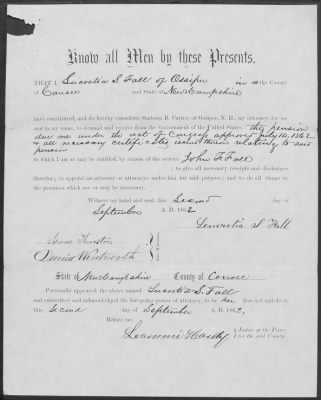 Know all Men by these Presents.
THAT I, Lucretia S. Fall of Ossipee in the County
of Carroll and State of New Hampshire
have constituted, and do hereby constitute Sanborn B. Carter, of Ossipee, N. H., my attorney, for me
and in my name, to demand and receive from the Government of the United States, the pension
due me under the act of Congress approved July 14, 1862
& all necessary certificates issued therein relating to said
pension
to which I am or may be entitled, by reason of the service John F. Fall
; to give all necessary receipts and discharges
therefor; to appoint an attorney or attorneys under him for said purpose; and to do all things in
the premises which are or may be necessary.
Witness my hand and seal, this Second day of
September A. D. 1862
Lucretia S. Fall
Thurston
Wentworth
Witnesses
State of New Hampshire County of Carroll
Personally appeared the above named Lucretia S. Fall
and subscribed and acknowledged the foregoing power of attorney, to be her free act and deed,
this Second day of September A. D. 1862,
Before me,
Justice of the Peace
for the said County.